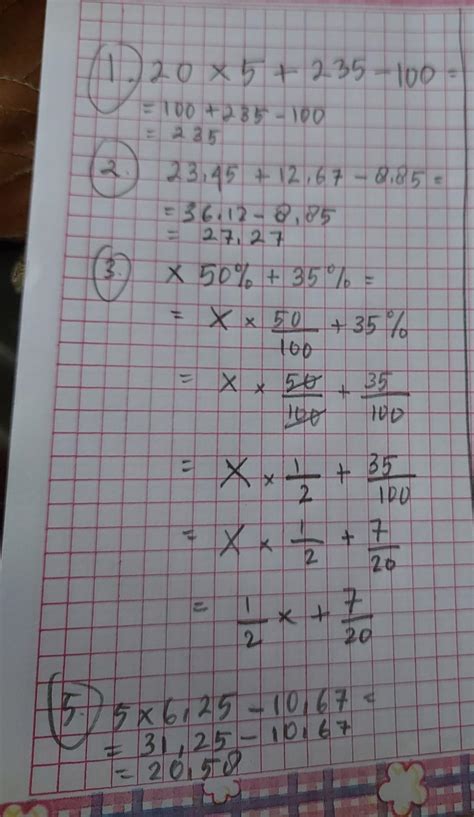 1. 20 × 5 + 235 - 100 =
= 100 + 235 - 100
= 235
2. 23,45 + 12,67 - 8,85 =
= 36,12 - 8,85
= 27,27
3. × 50% + 35% =
= X × 50/100 + 35%
= X × 50/100 + 35/100
= X × 1/2 + 35/100
= X × 1/2 + 7/20
= 1/2 x + 7/20
5. 5 × 6,25 - 10,67 =
= 31,25 - 10,67
= 20,58